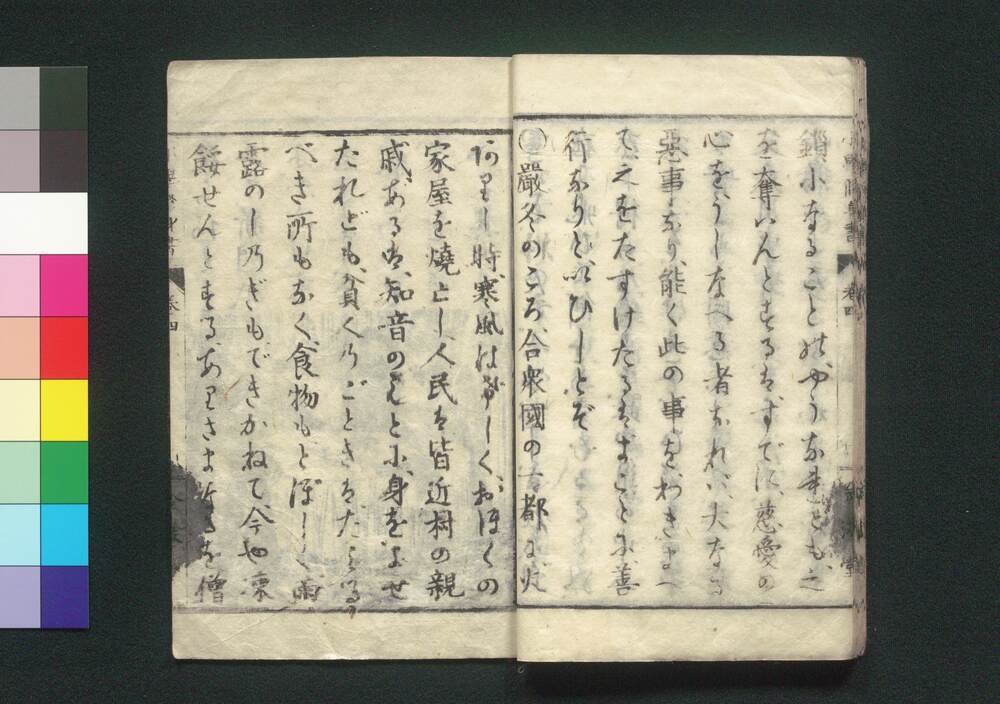 鎖小なることのやうなれども、之
を奪いんとするはすでに、慈愛の
心をうしなへる者なれバ、大なる
惡事なり、能く此の事をわきまへ
て之をたすけたるはまことに善
行なりといひしとぞ
嚴冬のころ合衆國の一都に火
ありし時、寒風はげしく、おほくの
家屋を燒亡し人民は皆近村の親
戚あるは、知音のもとに、身をよせ
たれども、貧くのごときはたよる
べき所もなく食物もとぼしく雨
露のしのぎもできかねて、今や凍
餒せんとするありさまを僧
卷四
卷四